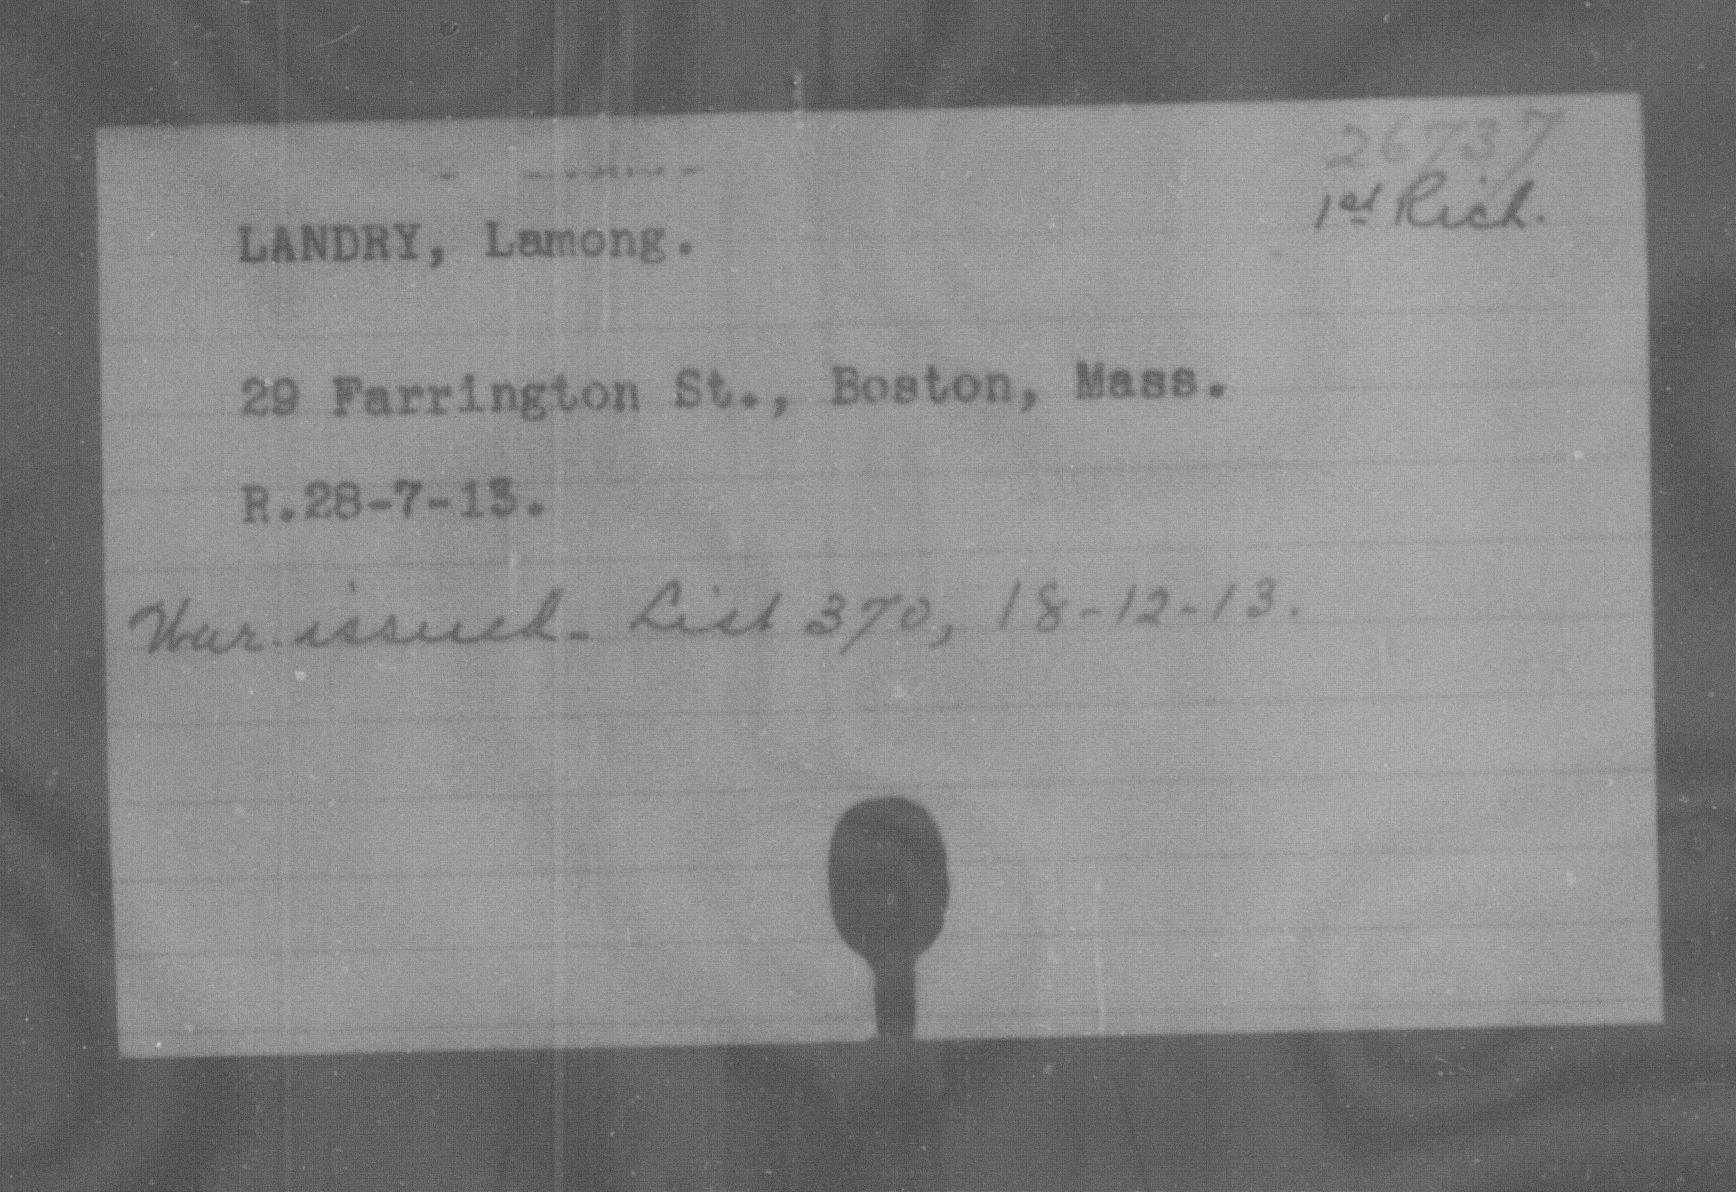 26737
1st Rich.
LANDRY, Lamong.
29 Farrington St., Boston, Mass.
R.28-7-13.
War. issued - List 370, 18-12-13.